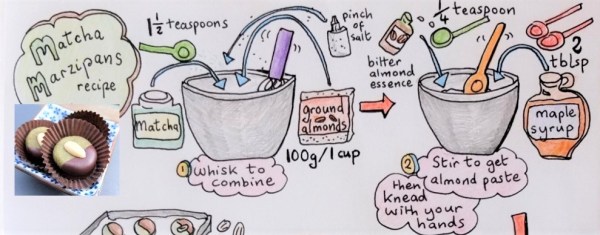 Matcha
Marzipans
recipe
1 1/2 teaspoons
pinch
of
salt
Matcha
ground
almonds
100g/1 cup
1 Whisk to
combine
bitter
almond
essence
1/4 teaspoon
2
tblsp
maple
syrup
2 Stir to get
almond paste
then
knead
with your
hands